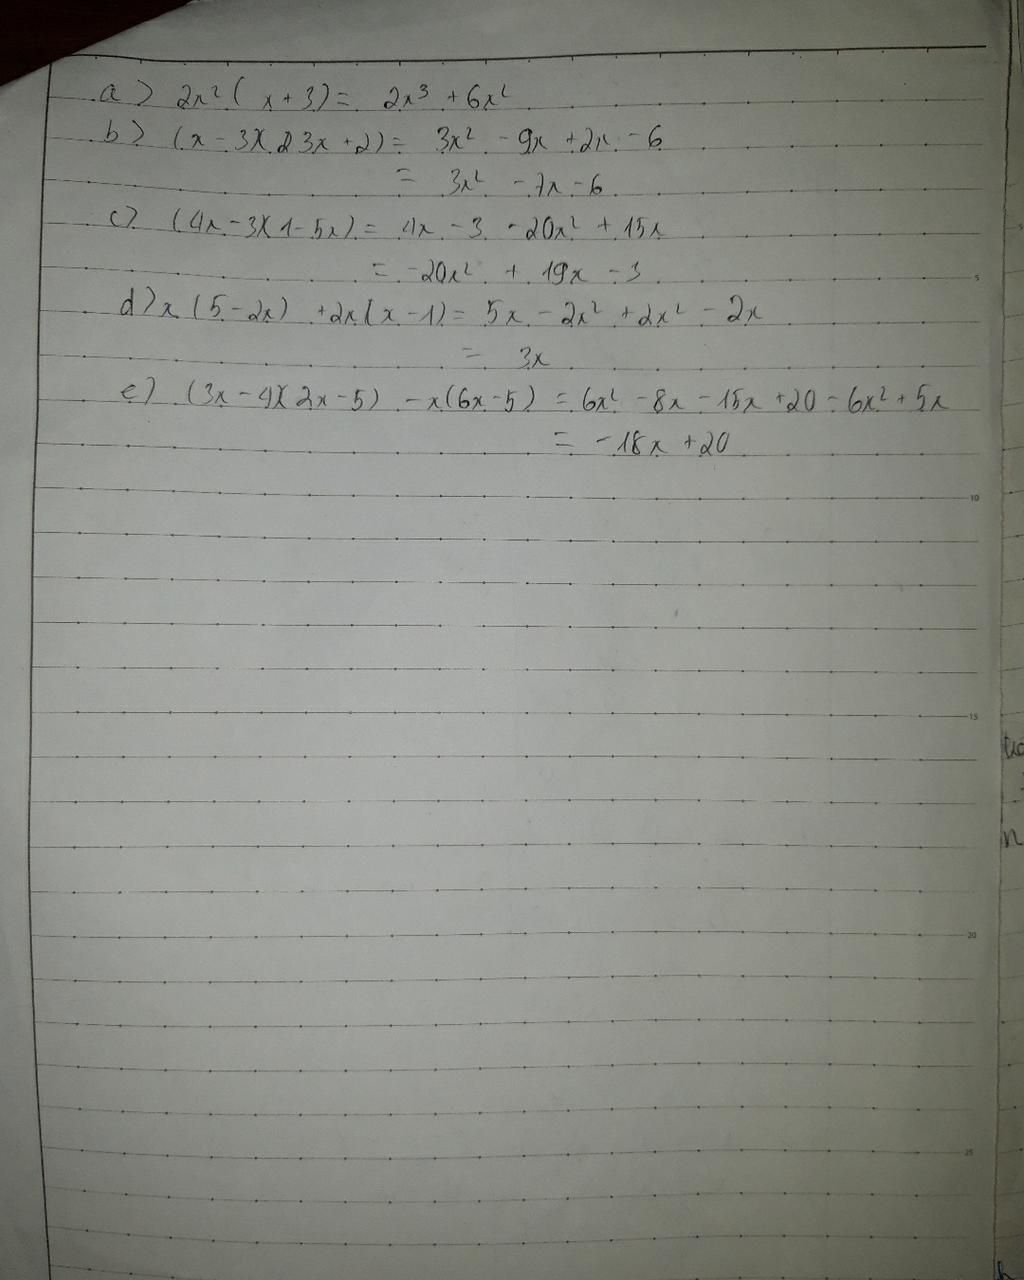 a) 2x²(x+3) = 2x³ + 6x²
b) (x - 3)(3x + 2) = 3x² - 9x + 2x - 6
= 3x² - 7x - 6
c) (4x - 3)(1 - 5x) = 4x - 3 - 20x² + 15x
= -20x² + 19x - 3
d) x(5 - 2x) + 2x(x - 1) = 5x - 2x² + 2x² - 2x
= 3x
e) (3x - 4)(2x - 5) - x(6x - 5) = 6x² - 8x - 15x + 20 - 6x² + 5x
= -18x + 20
5
10
15
20
25